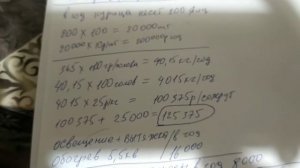 в год курица несёт 200 яиц
200 × 100 = 20000шт
20000 × 10р/шт = 200000р/год
365 × 110гр/голова = 40,15 кг/год
40,15 × 100голов = 4015 кг/год
4015 × 25р/кг = 100375 р/сожрут
100375 + 25000 = 125375
освещение + /в год
Обогрев 5,5кв 16000
год 8000